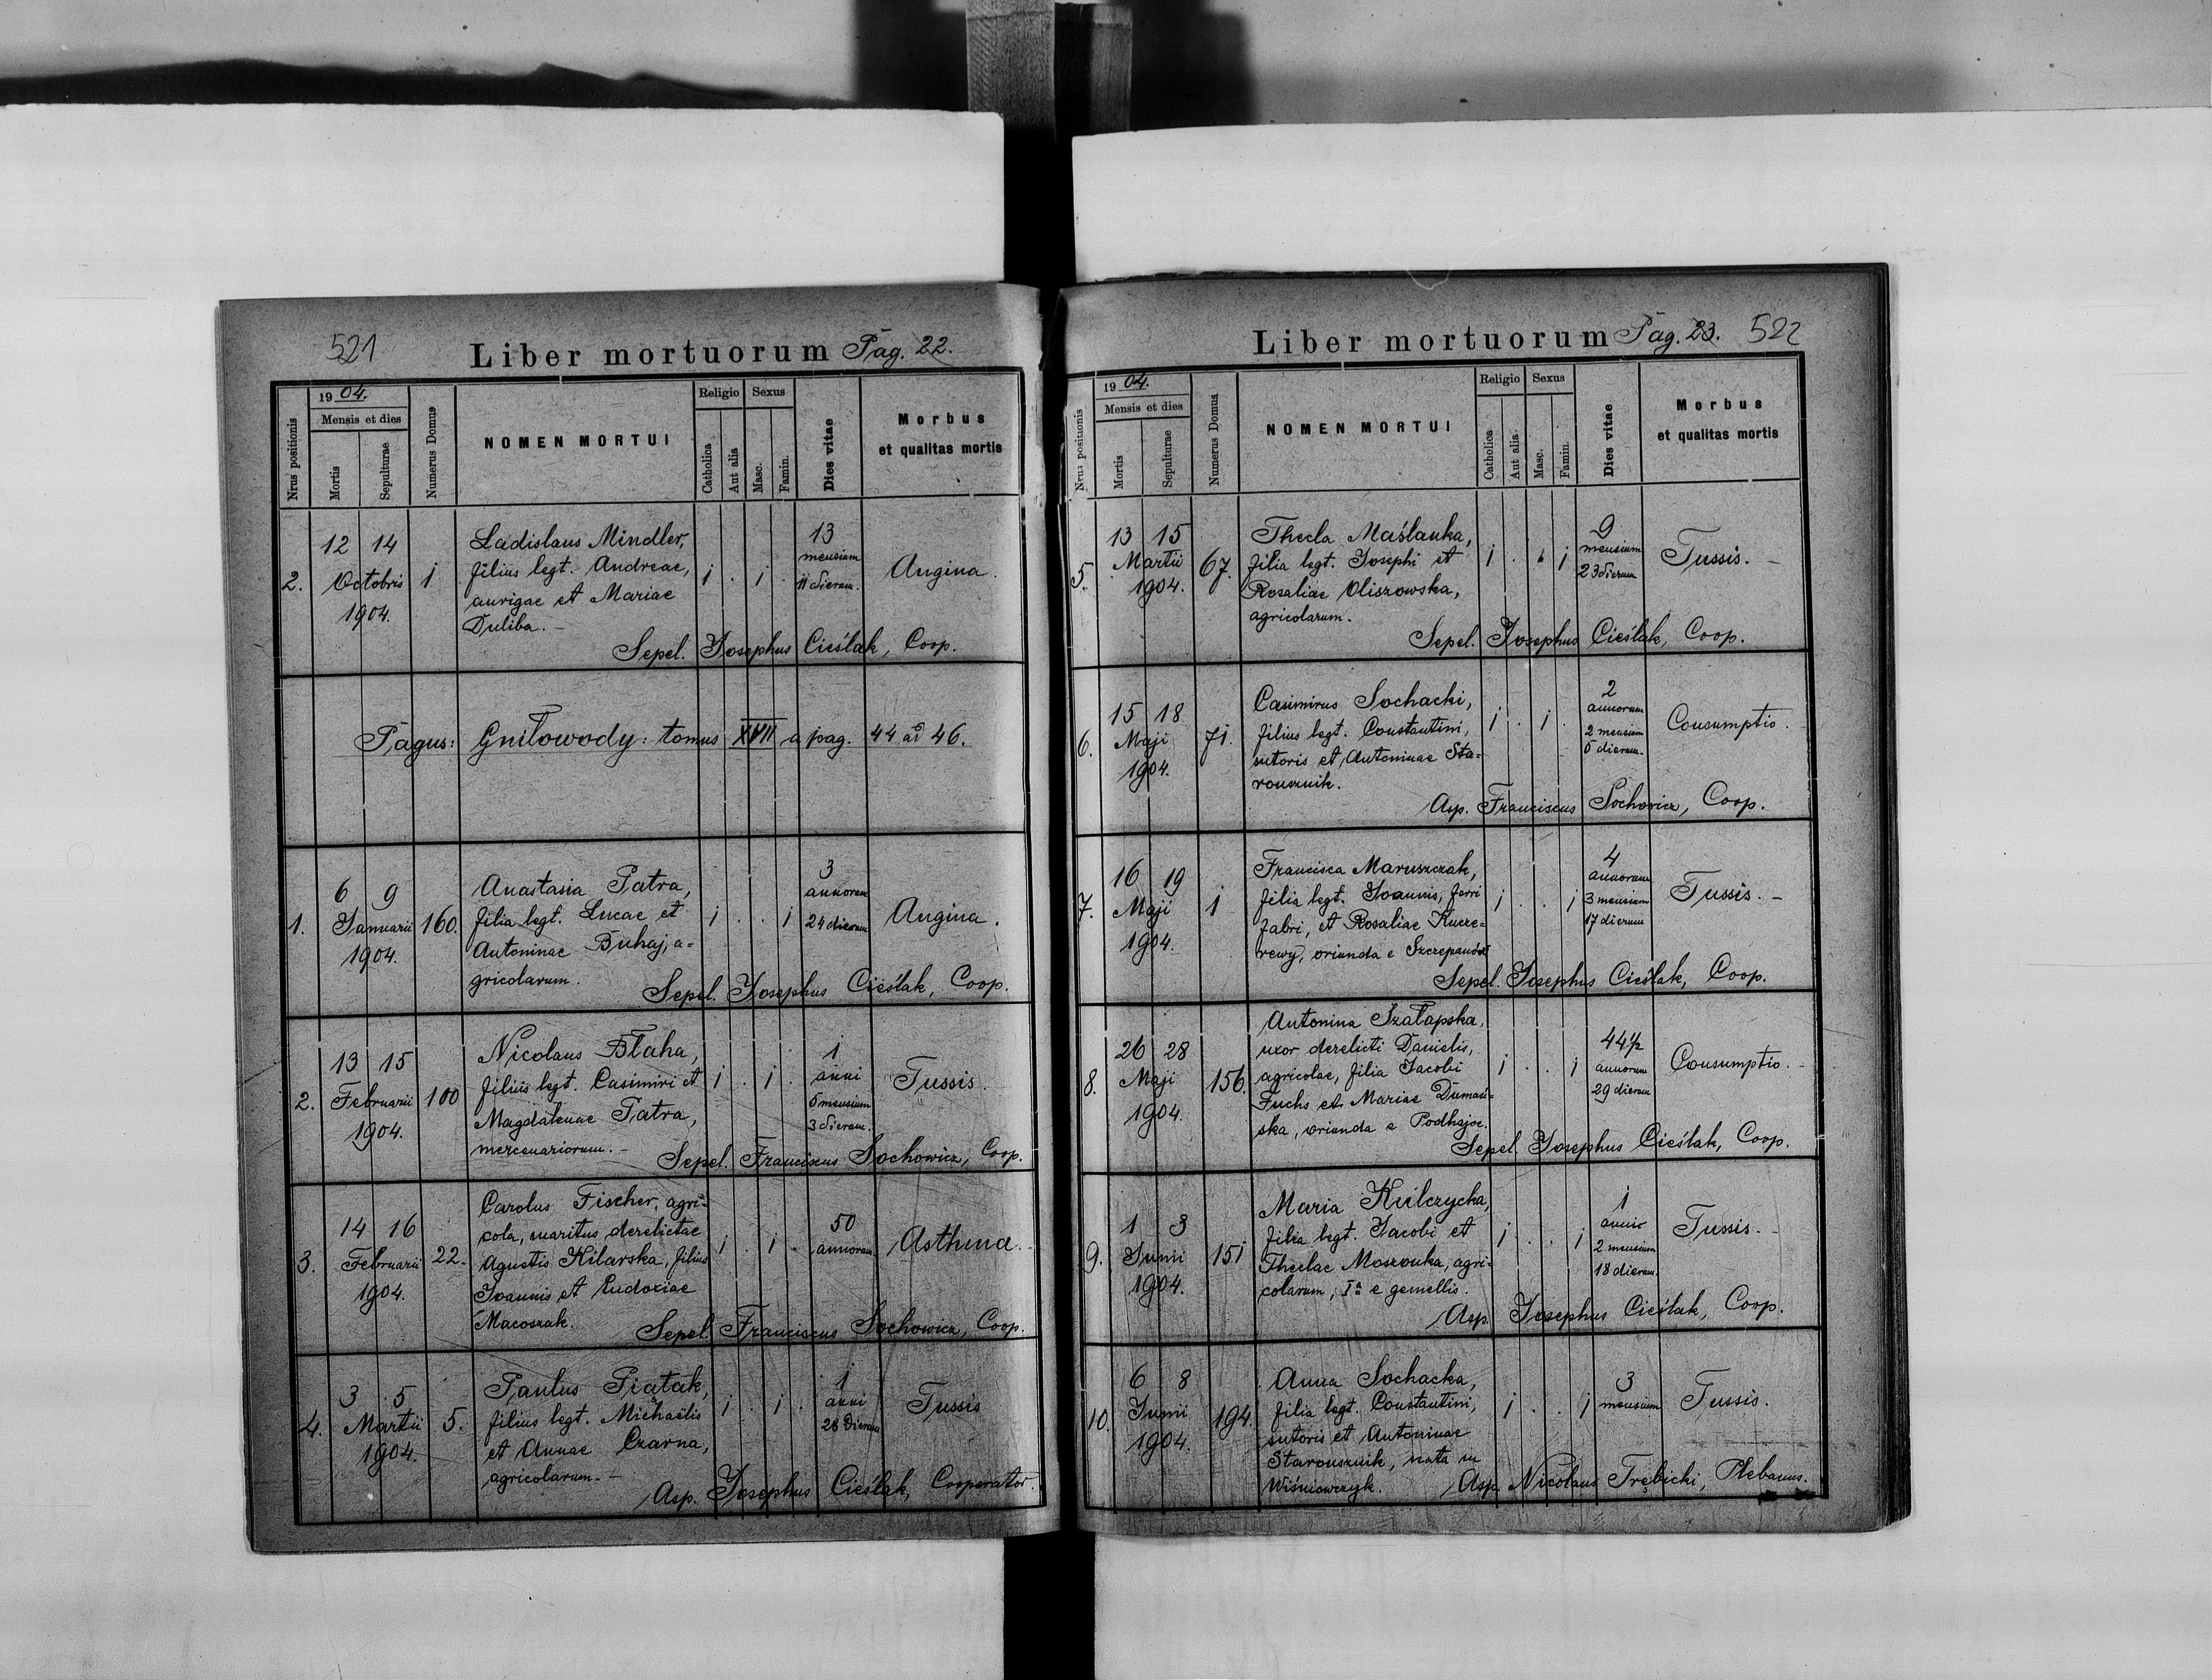 521
Liber mortuorum Pag. 22.
Nrus positionis
19 04.
Mensis et dies
Mortis
Sepulturae
Numerus Domus
NOMEN MORTUI
Religio
Catholica
Aut alia
Sexus
Masc.
Famin.
Dies vitae
Morbus
et qualitas mortis
2.
12 14
Octobris
1904.
1
Ladislaus Mindler,
filius legt. Andreae,
aurigae et Mariae
Duliba. -
1 . 1 .
13
mensium
11 dierum.
Angina.
Sepel. Josephus Cieślak, Coop.
Pagus: Gniłowody: tomus XVII a pag. 44 ad 46.
1.
6 9
Januarii
1904.
160.
Anastasia Patra,
filia legt. Lucae et
Antoninae Buhaj, a=
gricolarum.
1 . . 1
3
annorum
24 dierum
Angina.
Sepel. Josephus Cieślak, Coop.
2.
13 15
Februarii
1904.
100
Nicolaus Błaha,
filius legt. Casimiri et
Magdalenae Patra,
mercenariorum. -
1 . 1 .
1
anni
5 mensium
3 dierum.
Tussis.
Sepel. Franciscus Sochowicz, Coop.
3.
14 16
Februarii
1904.
22.
Carolus Fischer, agri=
cola, maritus derelictae
Agnetis Kilarska, filius
Joannis et Eudoxiae
Macoszak.
1 . 1 .
50
annorum
Asthma.
Sepel. Franciscus Sochowicz, Coop.
4.
3 5
Martii
1904.
5.
Paulus Piątak,
filius legt. Michaëlis
et Annae Czarna,
agricolarum. -
1 . 1 .
1
anni
28 dierum
Tussis
Asp. Josephus Cieślak, Cooperator.
Liber mortuorum Pag. 23. 522
Nrus positionis
19 04.
Mensis et dies
Mortis
Sepulturae
Numerus Domus
NOMEN MORTUI
Religio
Catholica
Aut alia
Sexus
Masc.
Famin.
Dies vitae
Morbus
et qualitas mortis
5.
13 15
Martii
1904.
67.
Thecla Maślanka,
filia legt. Josephi et
Rosaliae Oliszowska,
agricolarum.
1 . . 1
9
mensium
23 dierum
Tussis. -
Sepel. Josephus Cieślak, Coop.
6.
15 18
Maji
1904.
71.
Casimirus Sochacki,
filius legt. Constantini,
sutoris et Antoninae Sta=
rousznik.
1 . 1 .
2
annorum
2 mensium
5 dierum.
Consumptio.
Asp. Franciscus Sochowicz, Coop.
7.
16 19
Maji
1904.
1
Francisca Maruszczak,
filia legt. Joannis, ferri
fabri, et Rosaliae Kucze=
rewy, oriunda e Szczepanów
1 . . 1
4
annorum
3 mensium
17 dierum
Tussis. -
Sepel. Josephus Cieślak, Coop.
8.
26 28
Maji
1904.
156.
Antonina Szałapska,
uxor derelicti Danielis,
agricolae, filia Jacobi
Fuchs et Mariae Dumań=
ska, oriunda e Podhajce.
1 . . 1
44 1/2
annorum
29 dierum
Consumptio. -
Sepel. Josephus Cieślak, Coop.
9.
1 3
Junii
1904.
151
Maria Kulczycka,
filia legt. Jacobi et
Theclae Moszonka, agri=
colarum, Iª e gemellis.
1 . . 1
1
anni
2 mensium
18 dierum.
Tussis. -
Asp. Josephus Cieślak, Coop.
10.
6 8
Junii
1904.
194.
Anna Sochacka,
filia legt. Constantini,
sutoris et Antoninae
Starousznik, nata in
Wiśniowczyk.
1 . . 1
3
mensium
Tussis.
Asp. Nicolaus Trębicki, Plebanus.